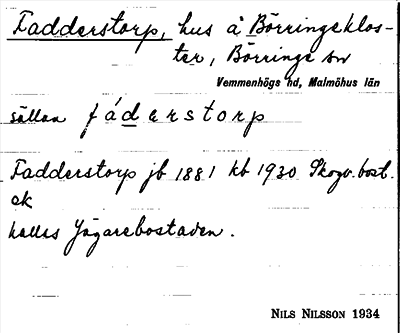 Fadderstorp, hus å Börringeklos-
ter, Börringe sn
Vemmenhögs hd, Malmöhus län
sällan fáderstorp
Fadderstorp jb 1881 kb 1930 Skogv.bost.
ek
kallas Jägarebostaden.
NILS NILSSON 1934